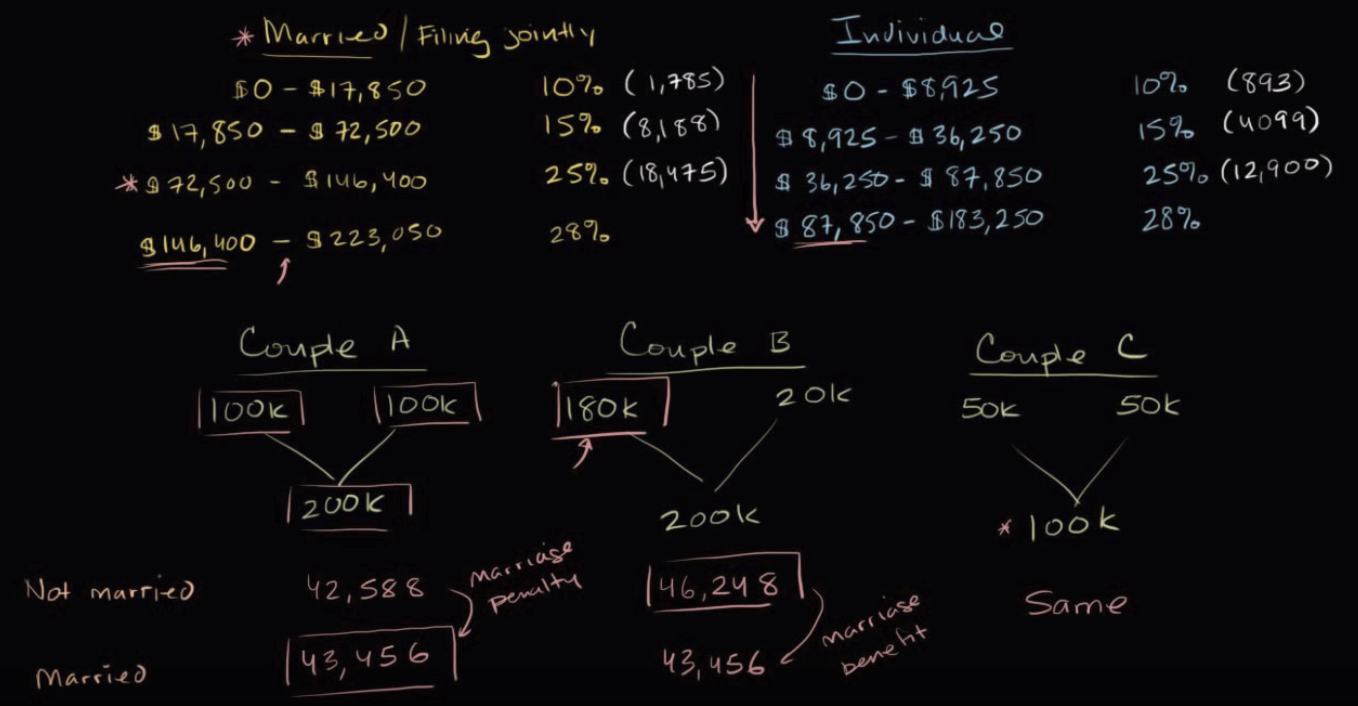 * Married / Filing jointly
$0 - $17,850 10% (1,785)
$17,850 - $72,500 15% (8,188)
* $72,500 - $146,400 25% (18,475)
$146,400 - $223,050 28%
Individual
$0 - $8,925 10% (893)
$8,925 - $36,250 15% (4099)
$36,250 - $87,850 25% (12,900)
$87,850 - $183,250 28%
Couple A
100k 100k
200k
Couple B
180k 20k
200k
Couple C
50k 50k
* 100k
Not married 42,588 46,248 Same
marriage
penalty
Married 43,456 43,456
marriage
benefit